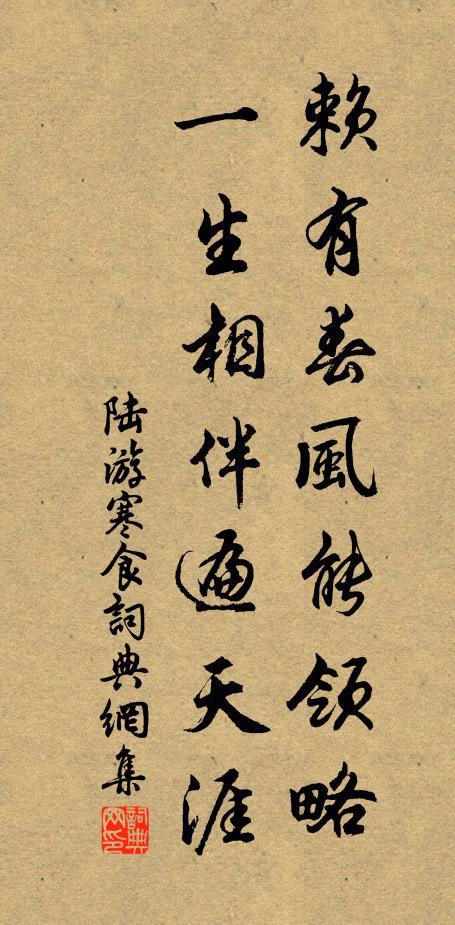 賴有春風能領略
一生相伴遍天涯
陆游寒食詞典網集
詞典網印